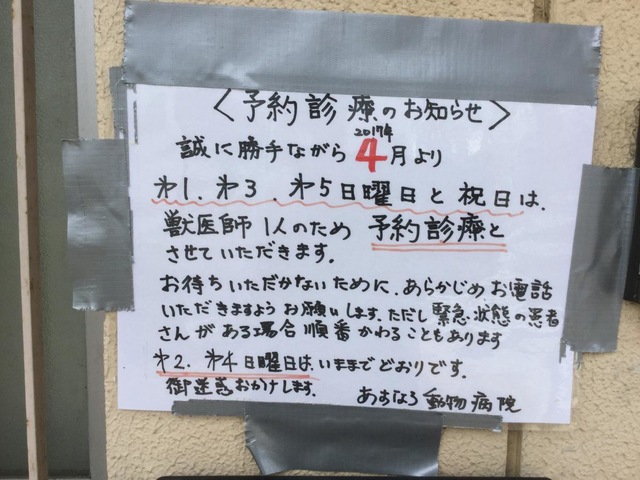 〈予約診療のお知らせ〉
2017年
誠に勝手ながら4月より
㐧1、㐧3、㐧5日曜日と祝日は、
獣医師1人のため 予約診療と
させていただきます。
お待ちいただかないために、あらかじめお電話
いただきますようお願いします。ただし緊急状態の患者
さんがある場合順番かわることもあります
㐧2、㐧4日曜日は、いままでどおりです。
御迷惑おかけします。 あすなろ動物病院